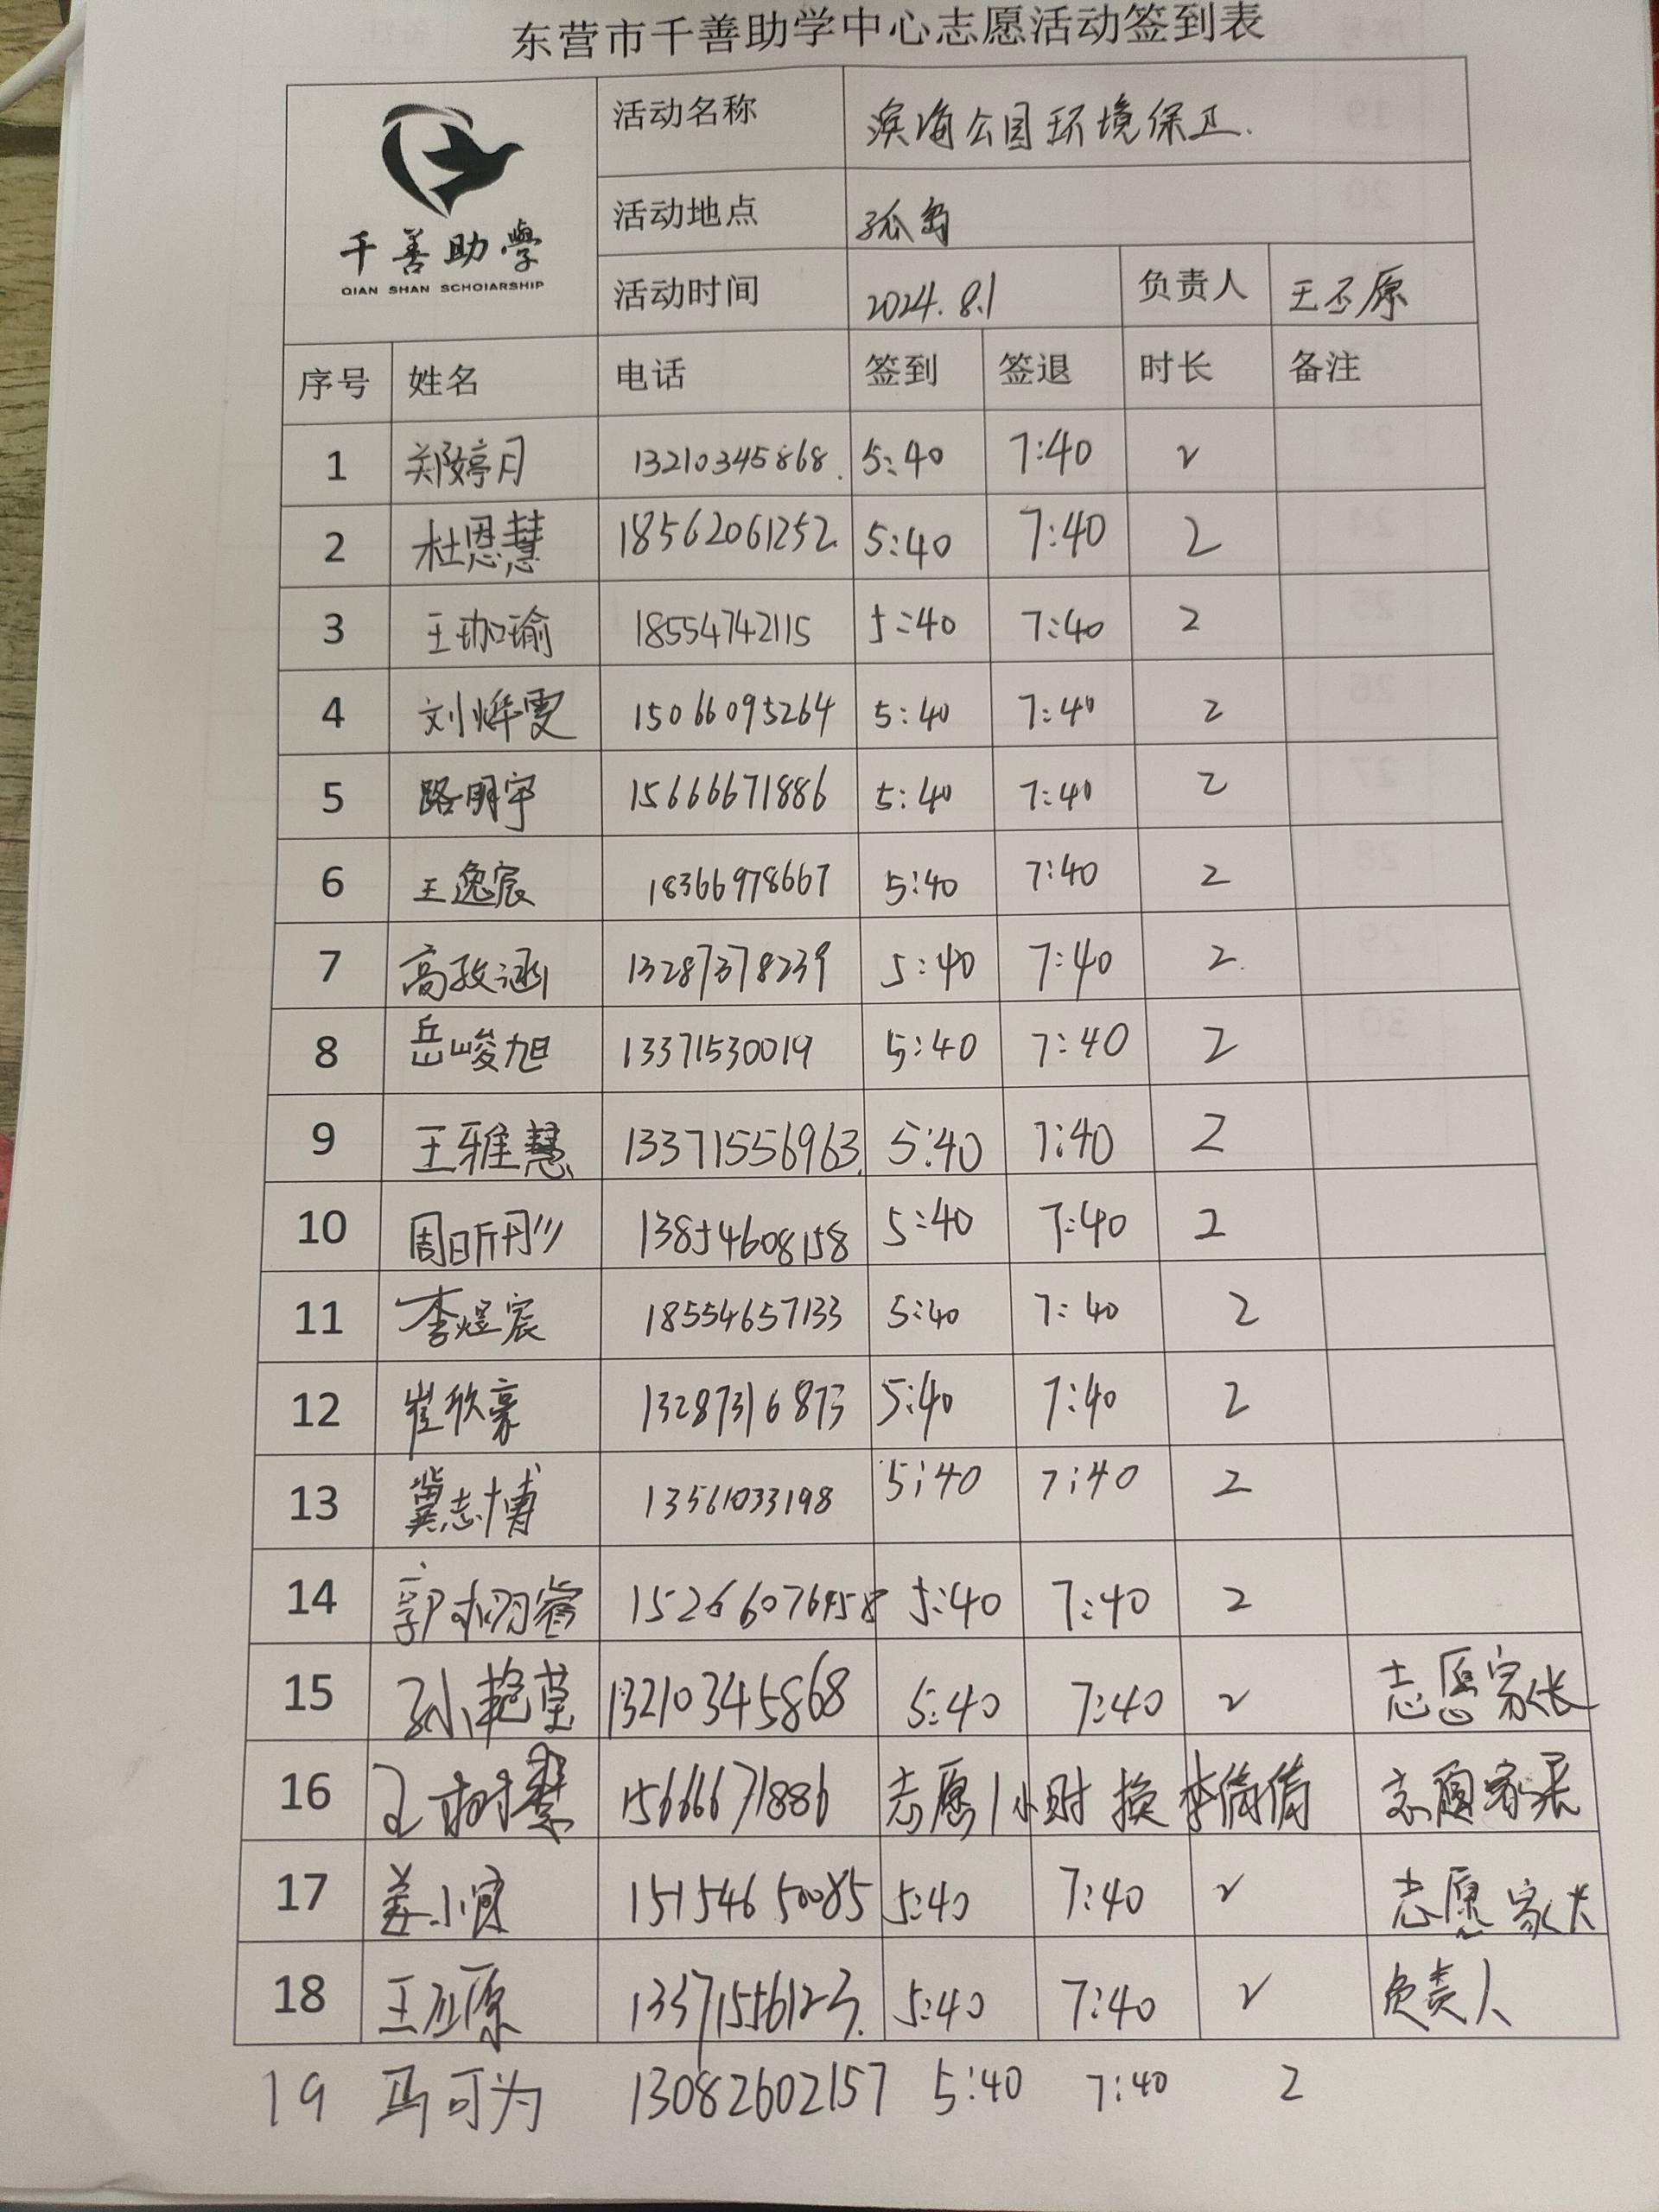 东营市千善助学中心志愿活动签到表
千善助學
QIAN SHAN SCHOIARSHIP
活动名称 滨海公园环境保卫.
活动地点 孤岛
活动时间 2024.8.1 负责人 王丕原
序号 姓名 电话 签到 签退 时长 备注
1 郑婷月 13210345868. 5:40 7:40 2
2 杜恩慧 18562061252. 5:40 7:40 2
3 王珈瑜 18554742115 5:40 7:40 2
4 刘烨雯 15066095264 5:40 7:40 2
5 路明宇 15666671886 5:40 7:40 2
6 王逸宸 18366978667 5:40 7:40 2
7 高孜涵 13287378239 5:40 7:40 2.
8 岳峻旭 13371530019 5:40 7:40 2
9 王雅慧 13371556963. 5:40 7:40 2
10 周昕彤 13854608158 5:40 7:40 2
11 李煜宸 18554657133 5:40 7:40 2
12 崔欣豪 13287316873 5:40 7:40 2
13 冀志博 13561033198 5:40 7:40 2
14 郭栩睿 15266076958 5:40 7:40 2
15 孙艳莹 13210345868 5:40 7:40 2 志愿家长
16 王树 15666671886 志愿1小时换李倩倩 志愿家长
17 姜小 15154650085 5:40 7:40 2 志愿家长
18 王丕原 13371556123. 5:40 7:40 2 负责人
19 马可为 13082602157 5:40 7:40 2